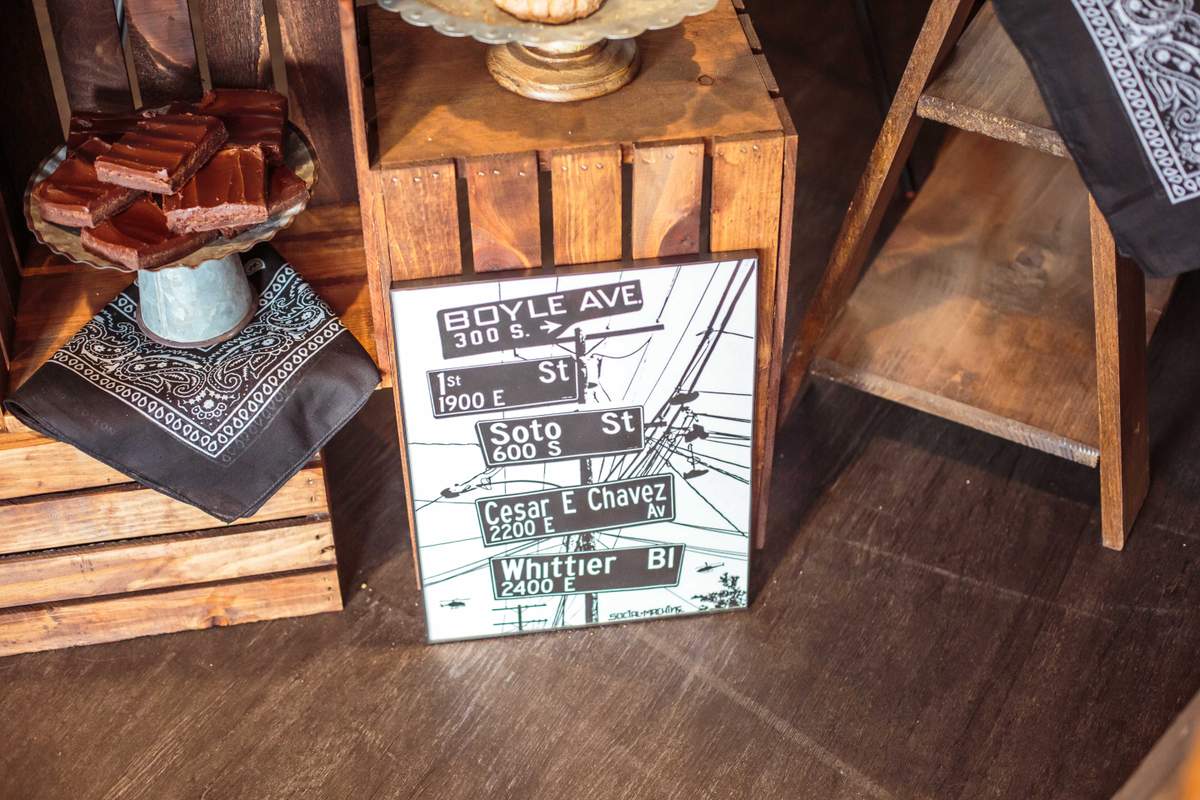 BOYLE AVE.
300 S. →
1St St
1900 E
Soto St
600 S
Cesar E Chavez
2200 E Av
Whittier Bl
2400 E
SOCIAL-MACHINE